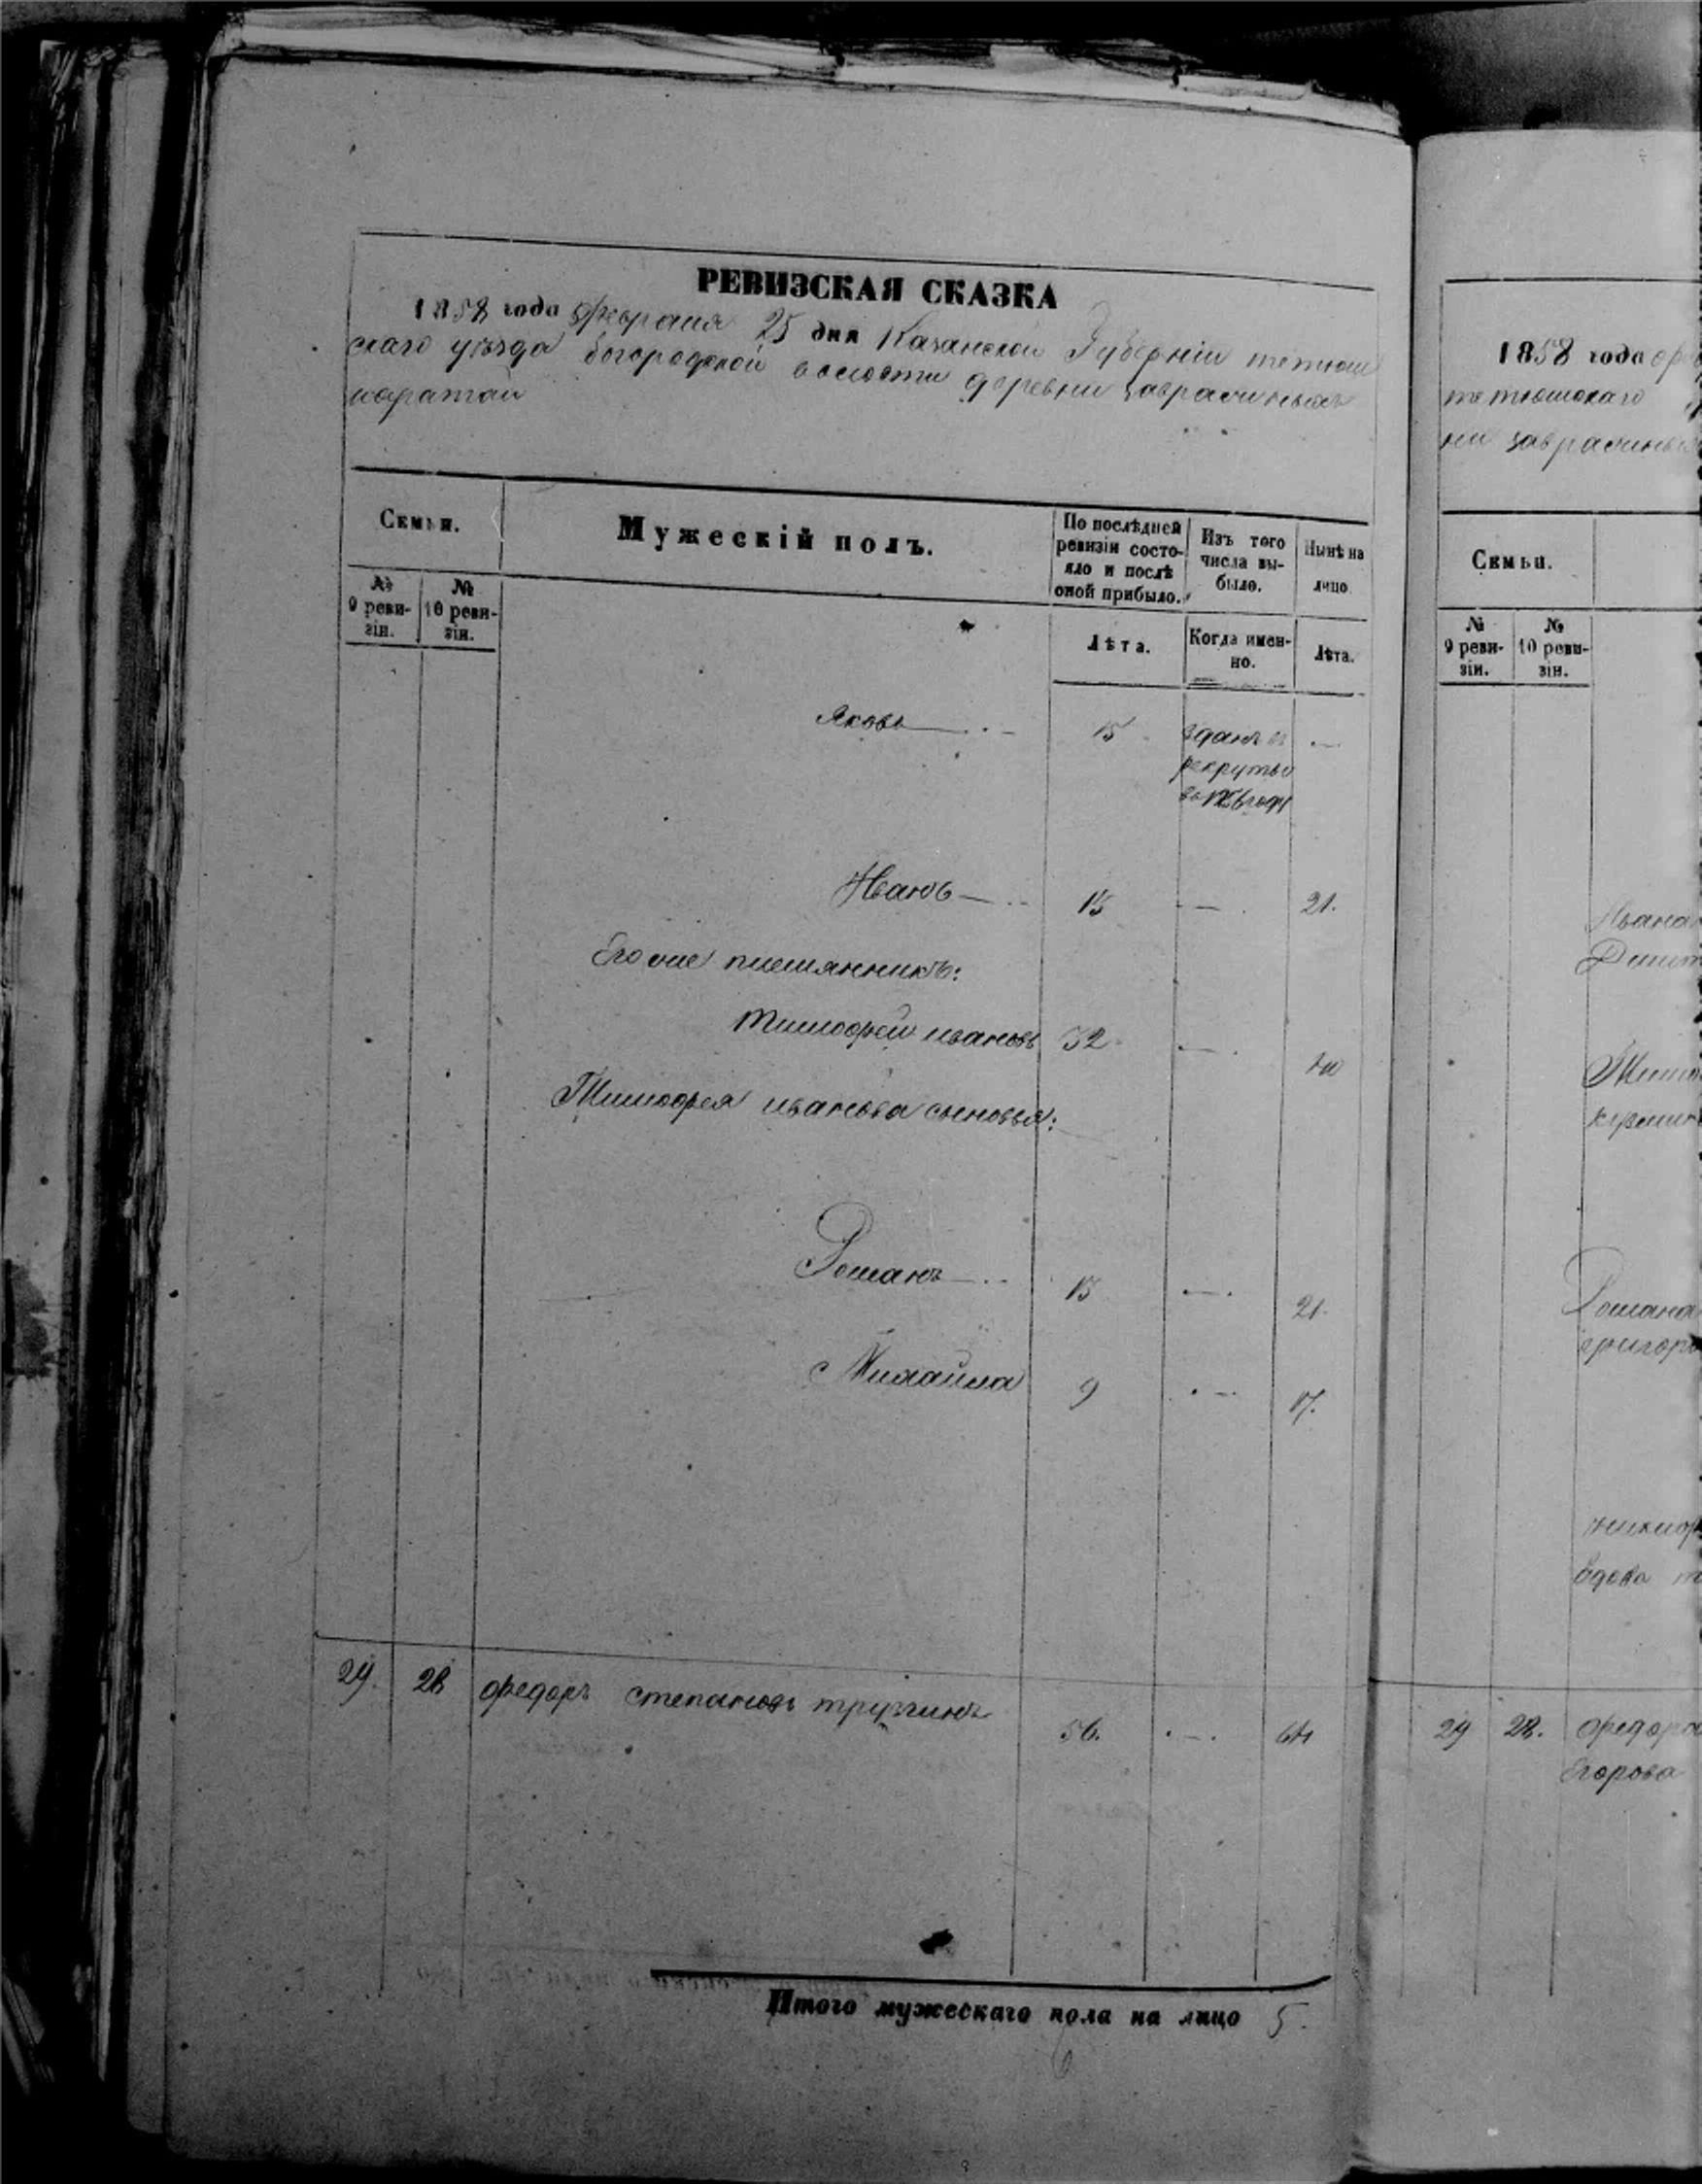 РЕВИЗСКАЯ СКАЗКА
1858 года февраля 25 дня Казанской Губерніи тетюш
скаго уѣзда богородской волости деревни
каратаи
Семьи.
Мужескій полъ.
По послѣдней ревизіи состо-
яло и послѣ
оной прибыло.
Изъ того
числа вы-
было.
Нынѣ на
лицо.
№
9 реви-
зіи.
№
10 реви-
зіи.
Лѣта.
Когда имен-
но.
Лѣта.
Яковъ 15 зданъ въ —
рекруты
во году
Иванъ 13 — 21.
Его же племянникъ:
Тимофей ивановъ 32 — 40
Тимофея иванова сыновья:
Романъ 13 — 21.
Михайла 9 — 17.
29. 28 федоръ степановъ 56. — 64
Итого мужескаго пола на лицо 5.
1858 года
тетюшскаго
ни
Семьи.
№
9 реви-
зіи.
№
10 реви-
зіи.
Ивана
Романа
вдова
29 28. федора
Егорова